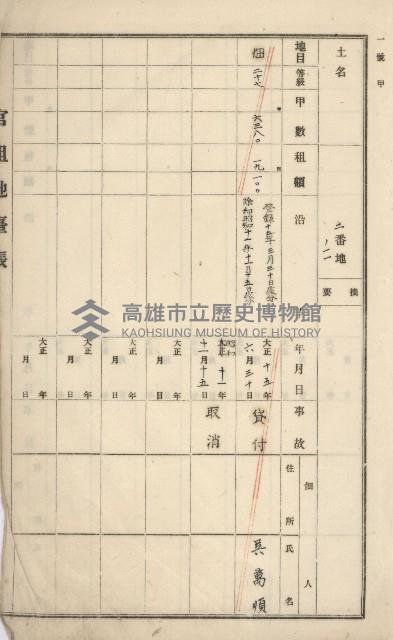 一號甲
土名
二番地ノ一一
摘要
地目
等級
甲數
租額
沿革
年月日
事故
佃人
住所
氏名
畑
二十七
六三八〇
一九一〇〇
登錄十五年三月三十日處分
除却昭和十一年十一月十五日處分
大正十五年六月三十日
貸付
吳萬順
昭和
大正十一年十一月十五日
取消
大正年月日
大正年月日
大正年月日
大正年月日
官租地臺帳
高雄市立歷史博物館
KAOHSIUNG MUSEUM OF HISTORY